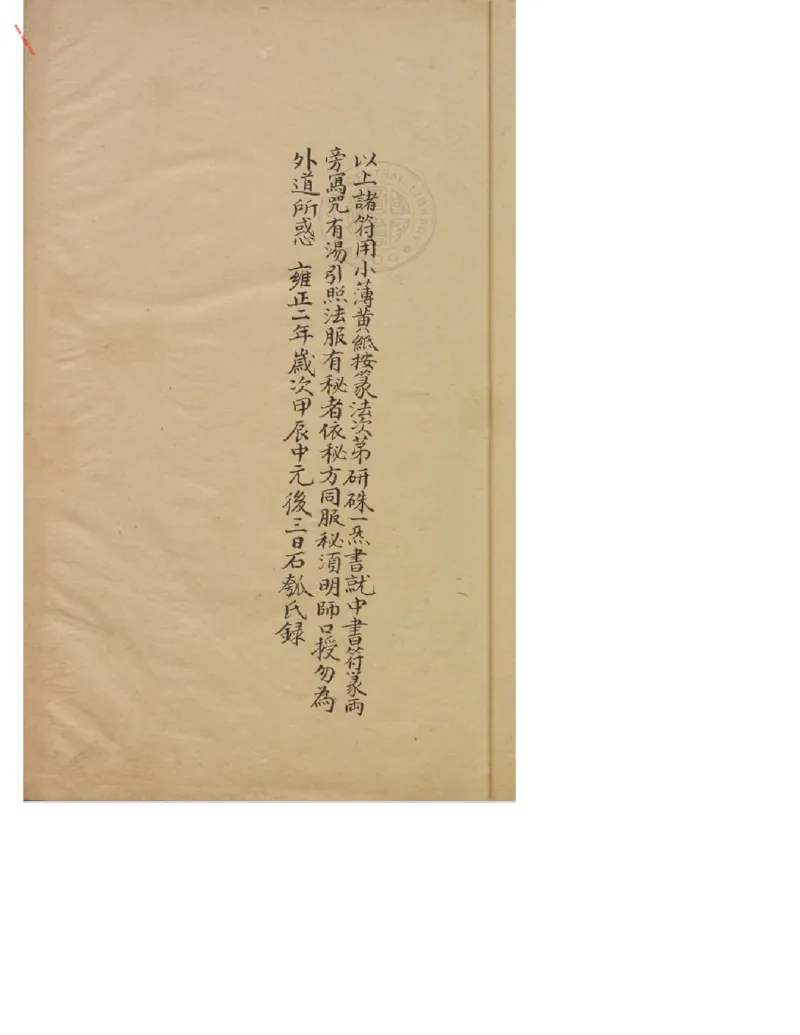 以上諸符用小薄黃紙按篆法次第研硃一炁書就中書符篆両
旁寫咒有湯引照法服有秘者依秘方同服秘須明師口授勿為
外道所惑 雍正二年歲次甲辰中元後三日石瓠氏録